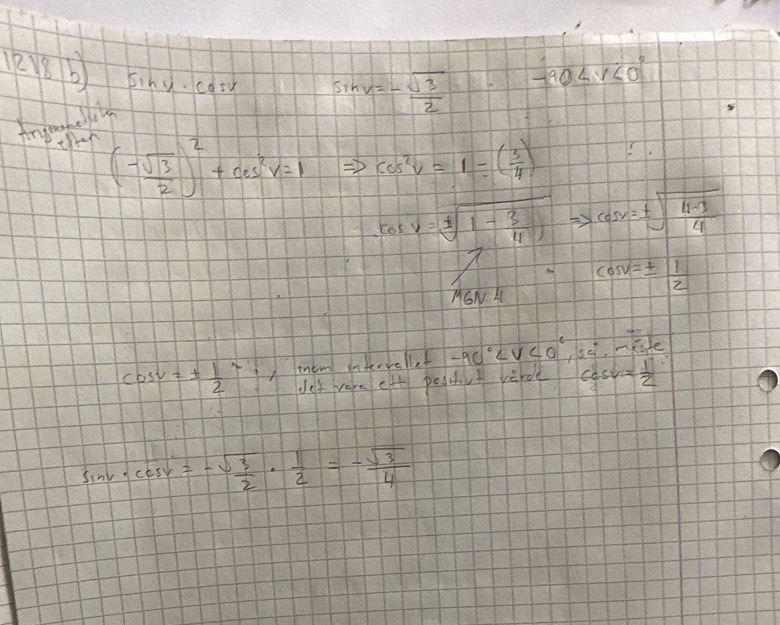 1218 b) sin v · cos v   sin v = -√3/2   -90 < v < 0°
Trigonometriska ettan
(-√3/2)² + cos²v = 1 ⇒ cos²v = 1 - (3/4)
cos v = ±√(1 - 3/4) ⇒ cos v = ±√((4-3)/4)
MGN 4   cos v = ± 1/2
cos v = ± 1/2, inom intervallet -90° < v < 0°, så måste
det vara ett positivt värde cos v = 1/2
sin v · cos v = -√3/2 · 1/2 = -√3/4